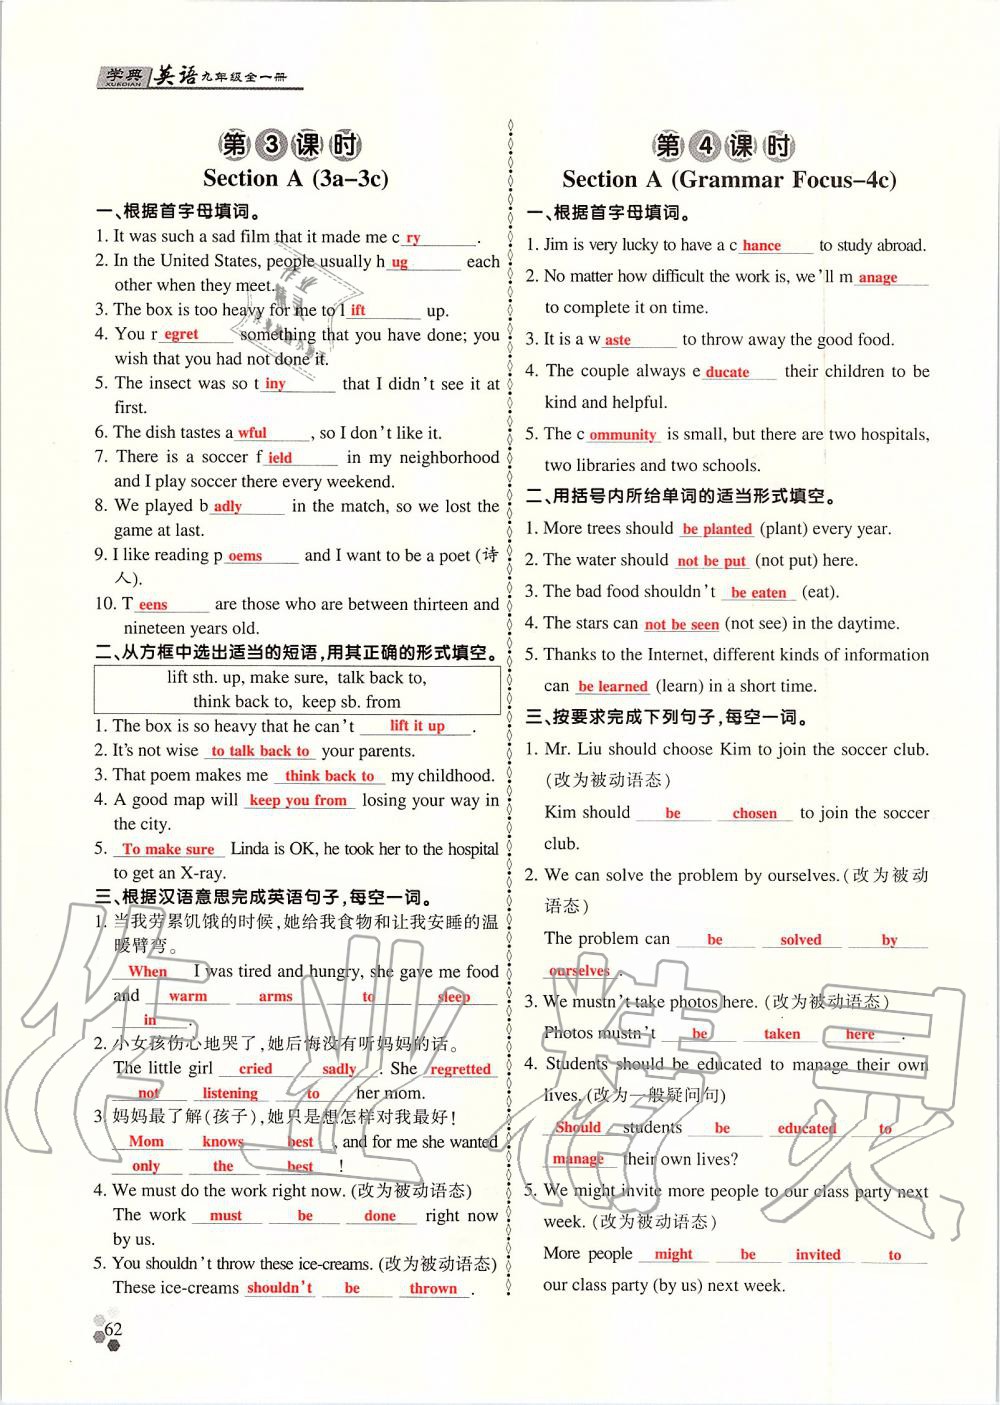 学典 XUEDIAN 英语九年级全一册
第3课时
Section A (3a–3c)
一、根据首字母填词。
1. It was such a sad film that it made me c ry .
2. In the United States, people usually h ug each
other when they meet.
3. The box is too heavy for me to l ift up.
4. You r egret something that you have done; you
wish that you had not done it.
5. The insect was so t iny that I didn't see it at
first.
6. The dish tastes a wful , so I don't like it.
7. There is a soccer f ield in my neighborhood
and I play soccer there every weekend.
8. We played b adly in the match, so we lost the
game at last.
9. I like reading p oems and I want to be a poet (诗
人).
10. T eens are those who are between thirteen and
nineteen years old.
二、从方框中选出适当的短语,用其正确的形式填空。
lift sth. up, make sure, talk back to,
think back to, keep sb. from
1. The box is so heavy that he can't lift it up .
2. It's not wise to talk back to your parents.
3. That poem makes me think back to my childhood.
4. A good map will keep you from losing your way in
the city.
5. To make sure Linda is OK, he took her to the hospital
to get an X-ray.
三、根据汉语意思完成英语句子,每空一词。
1. 当我劳累饥饿的时候,她给我食物和让我安睡的温
暖臂弯。
When I was tired and hungry, she gave me food
and warm arms to sleep
in .
2. 小女孩伤心地哭了,她后悔没有听妈妈的话。
The little girl cried sadly . She regretted
not listening to her mom.
3. 妈妈最了解(孩子),她只是想怎样对我最好!
Mom knows best , and for me she wanted
only the best !
4. We must do the work right now. (改为被动语态)
The work must be done right now
by us.
5. You shouldn't throw these ice-creams. (改为被动语态)
These ice-creams shouldn't be thrown .
62
第4课时
Section A (Grammar Focus–4c)
一、根据首字母填词。
1. Jim is very lucky to have a c hance to study abroad.
2. No matter how difficult the work is, we'll m anage
to complete it on time.
3. It is a w aste to throw away the good food.
4. The couple always e ducate their children to be
kind and helpful.
5. The c ommunity is small, but there are two hospitals,
two libraries and two schools.
二、用括号内所给单词的适当形式填空。
1. More trees should be planted (plant) every year.
2. The water should not be put (not put) here.
3. The bad food shouldn't be eaten (eat).
4. The stars can not be seen (not see) in the daytime.
5. Thanks to the Internet, different kinds of information
can be learned (learn) in a short time.
三、按要求完成下列句子,每空一词。
1. Mr. Liu should choose Kim to join the soccer club.
(改为被动语态)
Kim should be chosen to join the soccer
club.
2. We can solve the problem by ourselves. (改为被动
语态)
The problem can be solved by
ourselves .
3. We mustn't take photos here. (改为被动语态)
Photos mustn't be taken here .
4. Students should be educated to manage their own
lives. (改为一般疑问句)
Should students be educated to
manage their own lives?
5. We might invite more people to our class party next
week. (改为被动语态)
More people might be invited to
our class party (by us) next week.
作业精灵